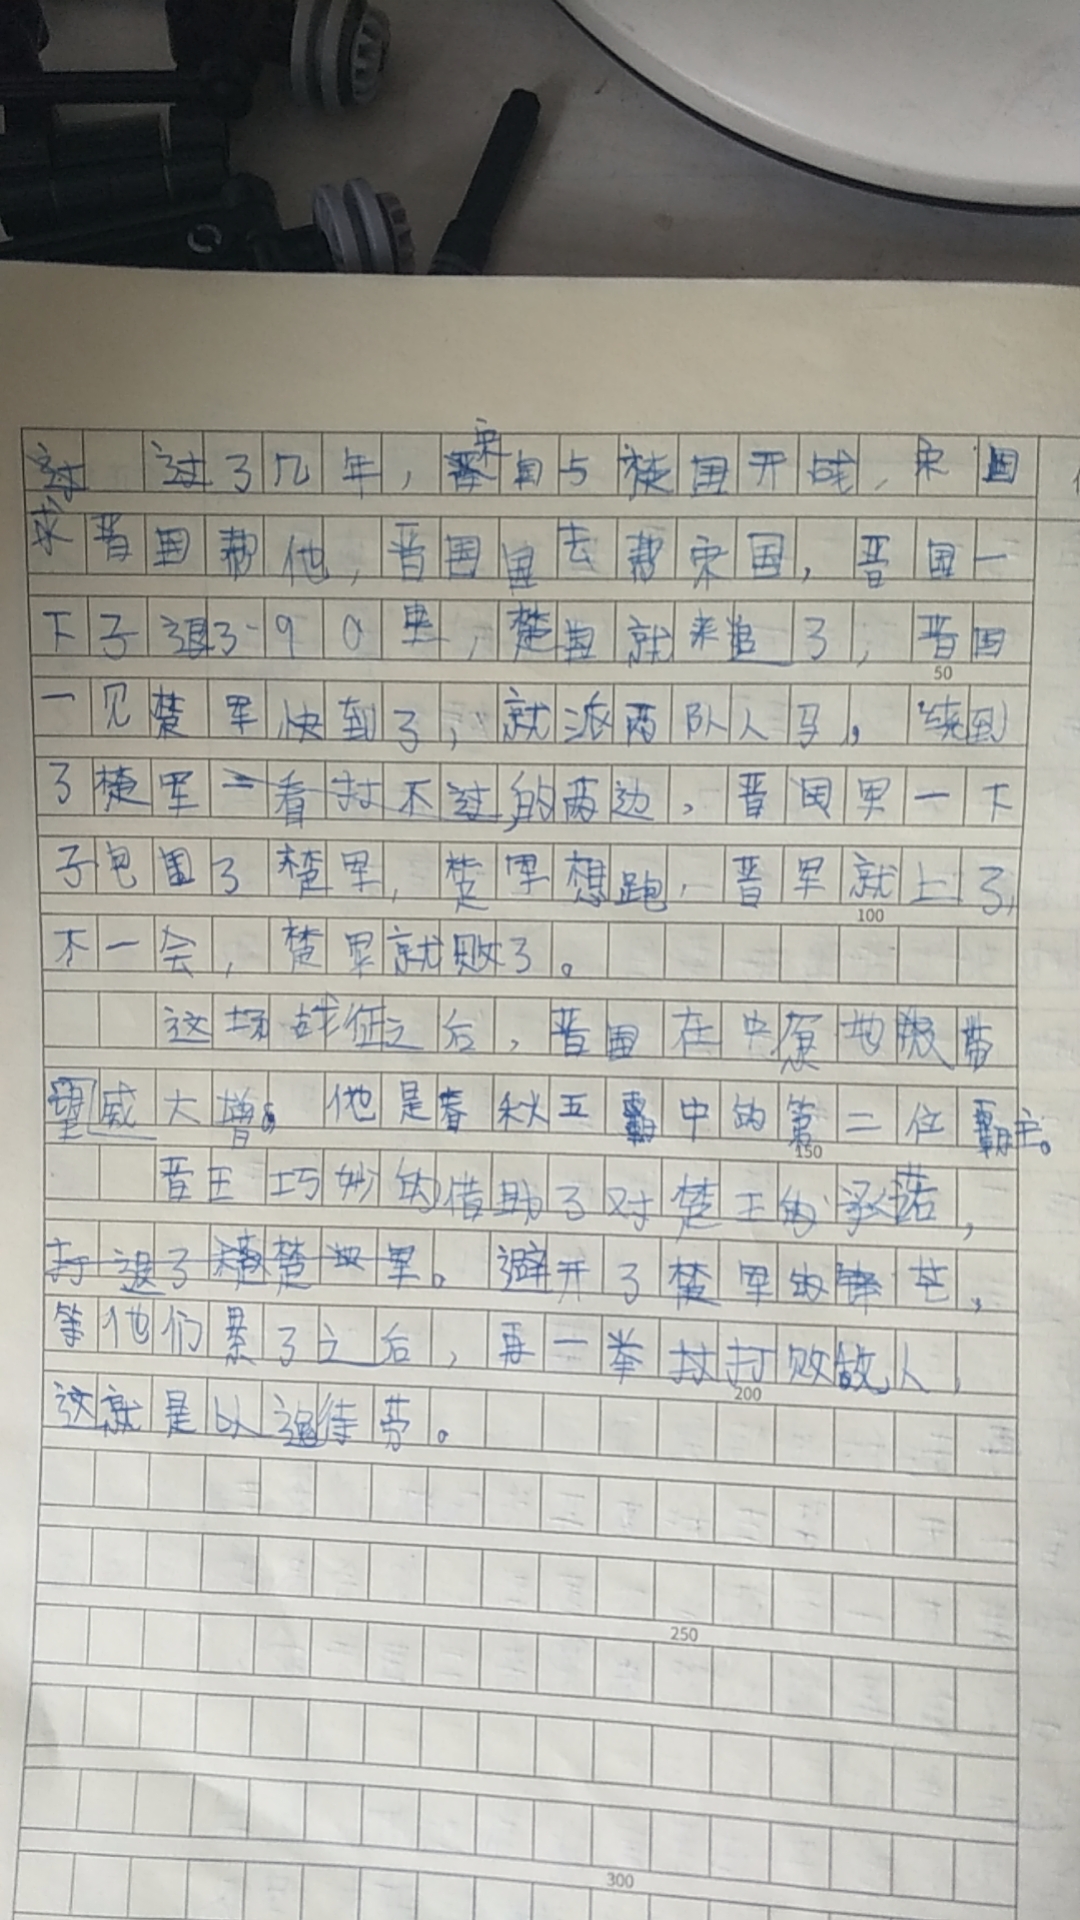 过了几年，宋国与楚国开战，宋国
求晋国帮他，晋国去帮宋国，晋国一
下子退了90里，楚国就来追了，晋国
50
一见楚军快到了，就派两队人马，绕到
了楚军的两边，晋国军一下
子包围了楚军，楚军想跑，晋军就上了，
100
不一会，楚军就败了。
这场战征之后，晋国在中原地
望威大增。他是春秋五霸中的第二位霸主。
150
晋王巧妙的借助了对楚王的承诺，
避开了楚军的锋芒，
等他们累了之后，再一举打败敌人，
200
这就是以逸待劳。
250
300